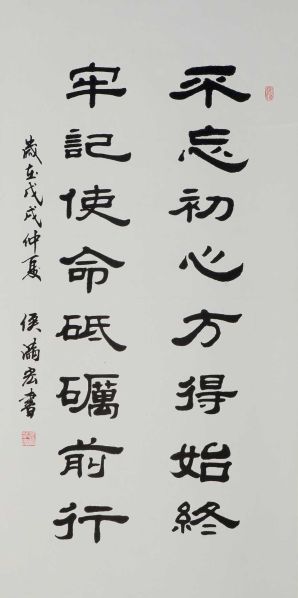 不忘初心方得始終
牢記使命砥礪前行
歲在戊戌仲夏 侯滿宏書